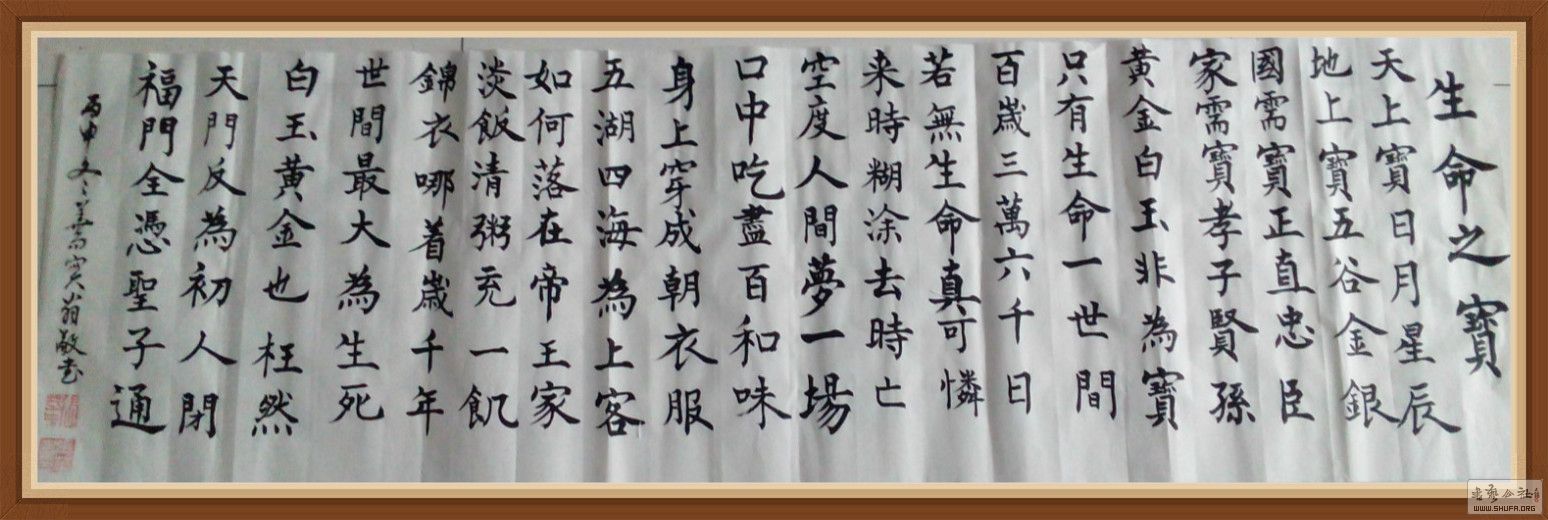 生命之寶
天上寶日月星辰
地上寶五谷金銀
國需寶正直忠臣
家需寶孝子賢孫
黃金白玉非為寶
只有生命一世間
百歲三萬六千日
若無生命真可憐
来時糊涂去時亡
空度人間夢一場
口中吃盡百和味
身上穿成朝衣服
五湖四海為上客
如何落在帝王家
淡飯清粥充一飢
錦衣哪着歲千年
世間最大為生死
白玉黃金也枉然
天門反為初人閉
福門全憑聖子通
丙申冬
翁敬书
WWW.SHUFA.ORG